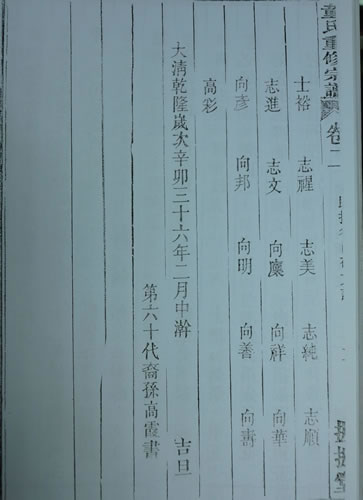 童氏重修宗譜 卷二
士裕 志禋 志美 志純 志順
志進 志文 向廩 向祥 向華
向彥 向邦 向明 向善 向壽
高彩
大清乾隆歲次辛卯三十六年二月中澣 吉旦
第六十代裔孫高霞書